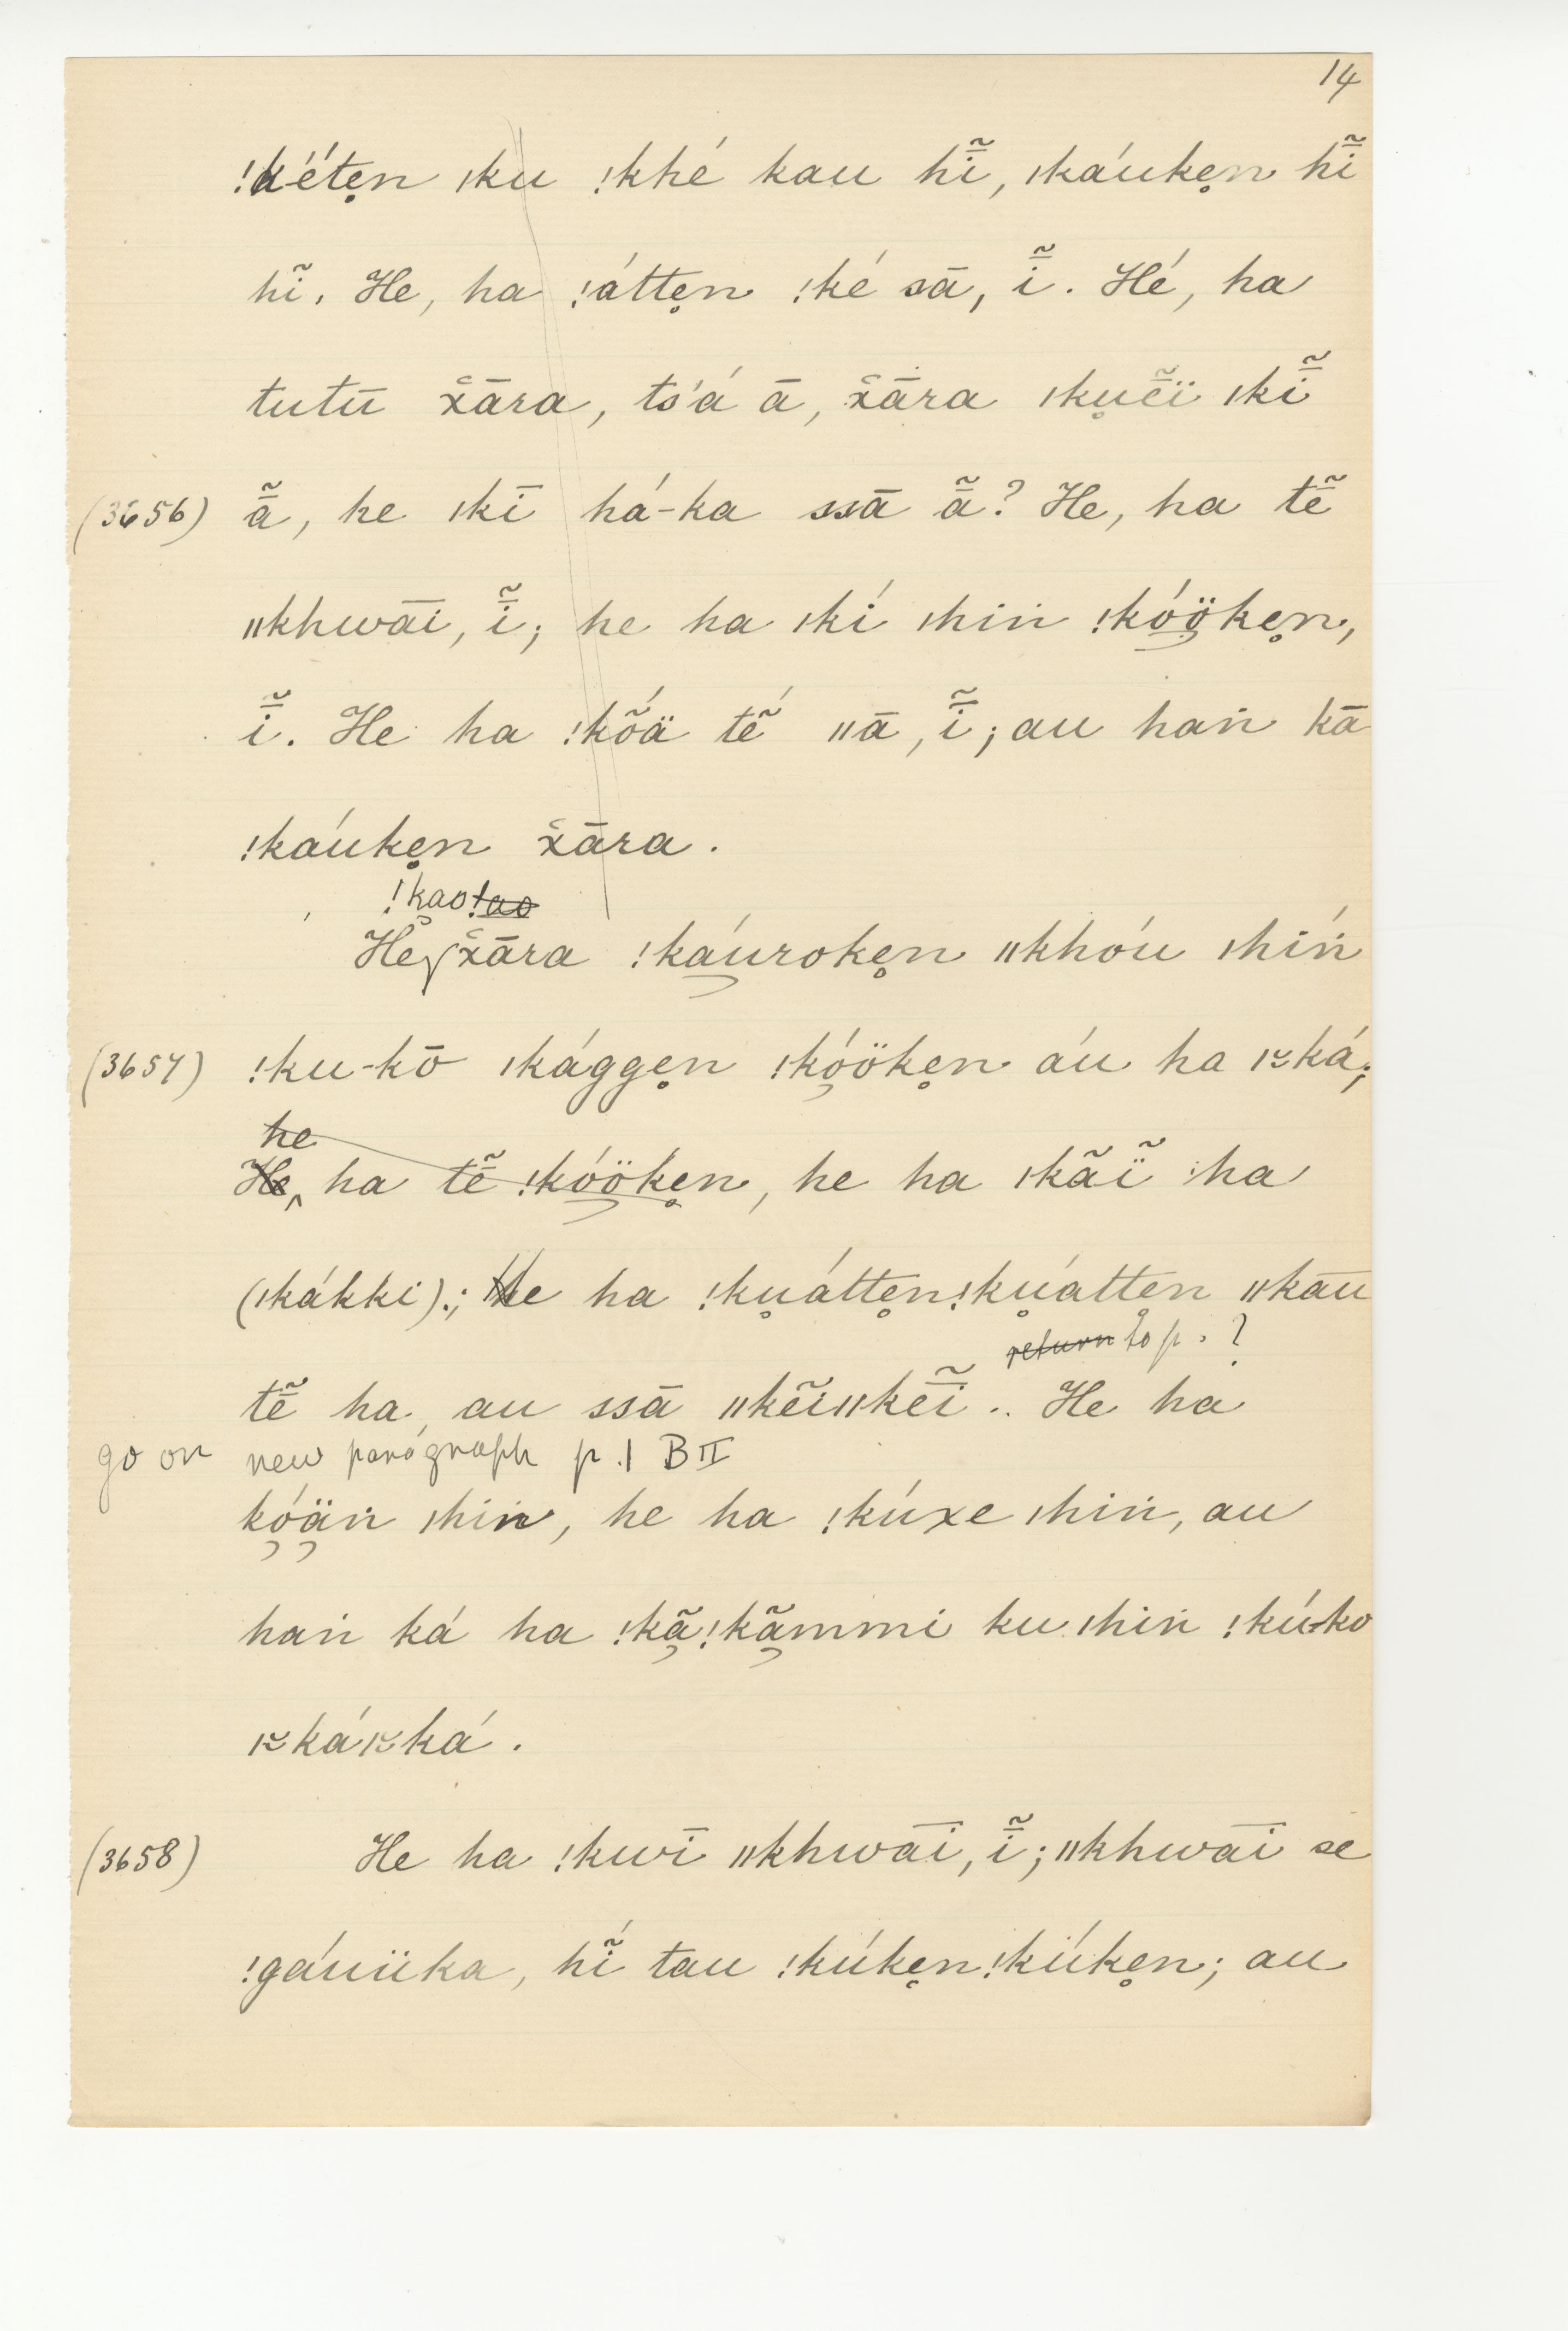 14
!k'éte̥n ıku !khé kau hĩ̄, ıkáuke̥n hĩ̄
hĩ. He, ha !átte̥n !ké sā, ĩ̄. Hé, ha
tutū x̆āra, ts'á ā, x̆āra ıku̥ẽ̄ï ıkĩ̄
(3656) ã̄, he ıkī há-ka ssā ã̄? He, ha tẽ̄
ııkhwāi, ĩ̄; he ha ıkí ıhiṅ !kó̱öke̥n,
ĩ̄. He ha !kṍä tẽ́ ııā, ĩ̄; au haṅ kā
!káuke̥n x̆āra.
!kao!ao
Hĕ x̆āra !ká̱uroke̥n ııkhóu ıhíṅ
(3657) !ku-kō ıkágge̥n !kó̱öke̥n áu ha ı≈ká;
he
He, ha tẽ̄ !kó̱öke̥n, he ha ıkãĩ̈ ha
(ıkákki).; He ha !ku̥átte̥n!ku̥átte̥n ııkāu
return to p. ?
tẽ̄ ha, au ssā ııkẽiııkẽ̄i.. He ha
go on new paragraph p. 1 B II
kó̱ä̱ṅ ıhiṅ, he ha !kúxe ıhiṅ, au
haṅ ká ha !kã̱!kã̱mmi ku ıhiṅ !kú-ko
ı≈káı≈ká.
(3658) He ha !kwī ııkhwāi, ĩ̄; ııkhwāi se
!gáuüka, hĩ́ tau !kúke̥n!kúke̥n; au